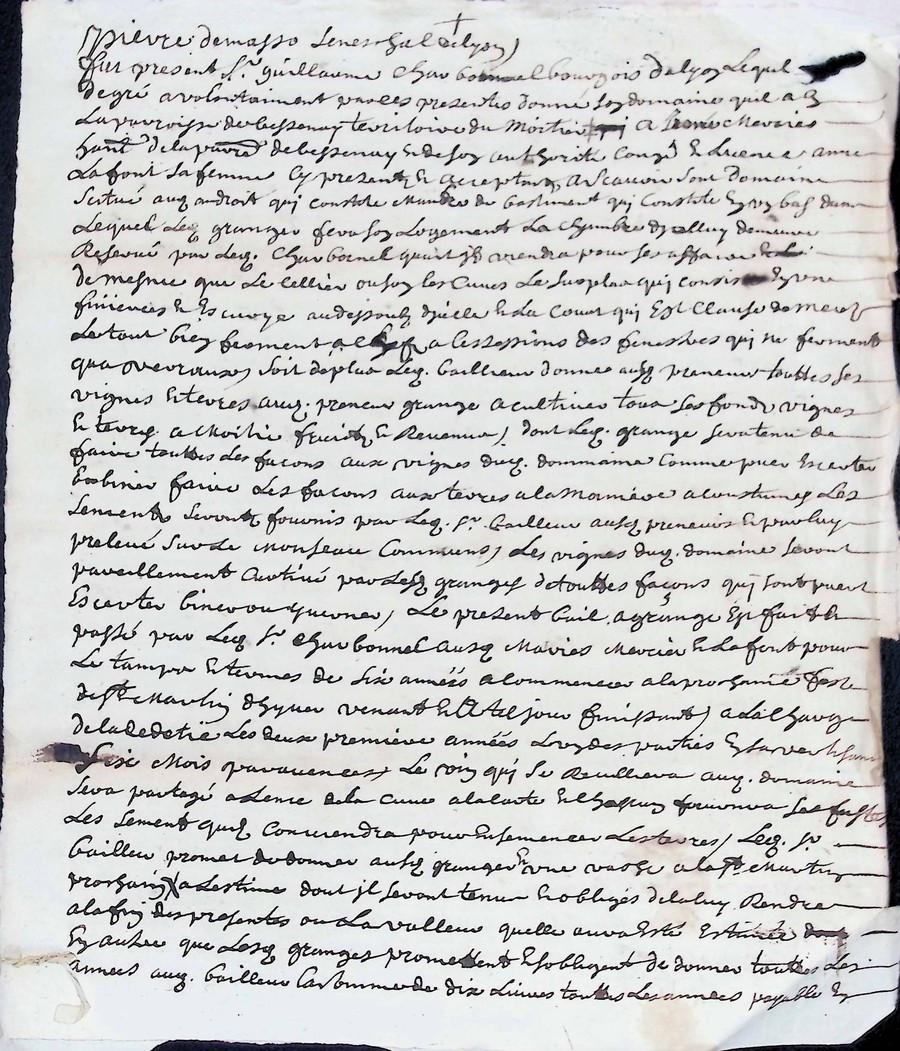 pierre demasso Seneschal de lyon)
fut present Sr. guillaume Charbonnel bourgois de lyon Lequel
de gré a volontairment par les presentes donné son domaine quil a en
La parroisse de bessenay territoire du Mortier a Mercier
habt. de la parred de bessenay Et de son authorité Congé Et Licence anne
Lafont Sa femme Cy presents Et aceptans, a Scavoir Sont Domaine
Scitué auq. androit qui consiste Membre de bastiment qui Consiste En un bas dans
Lequel Leq. granger fera son Logement La Chambre
Reservé par Leq. Charbonnel quant jl viendra pour ses affaires
de mesme que Le Cellier ou son les Cuves Le Surplus qui consiste En une
finieres Et Escurye audessoub djcelle Et La Court qui Est Clause de mur
Le tout bien ferment a Clef a Lessessions des fenestres qui ne ferment
qua Soit de plus Leq. bailleur donne ausq preneur touttes Ses
vignes Et terres auq. preneur grange a cultiver tous Les fonds vignes
Et terres a Moitie fruits Et Revenus) dont Leq. grange Sera tenu de
faire touttes Les façons aux vignes duq. dommaine Comme puer Escerter
Et biner faire Les façons aux terres a la Maniere acoustumes Les
Sements Seront fournis par Leq. Sr. bailleur ausq preneurs Et par luy
prelevé Sur Le Monseau Commung) Les vignes duq. domaine Seront
pareillement Cultivé par Lesq granges de touttes façons quj Sont puer
Escerter biner ou Le present bail a grange Est fait Et
passé par Leq Sr Charbonnel ausq Mariés Mercier Et Lafont pour
Le tamps Et termes de Six années a Commencer a la prochaine feste
de St Martin dhyver venant Et Atel jour finissant) a La Charge
de la Les deux premiere années Lun des parties En
Six Mois par avances Le vin quj Se Reculliera auq. domaine
Sera partagé a Lence de la Cuve a la Et Chascun fournira Ses fustes
Les Sement quil Conviendra pour Ensemencer Les terres) Leq. Sr
bailleur promet de donner ausq granger une vache a la St Martin
prochain a Lestime dont jl Seront tenus Et obliges de luy Rendre
a la fin des presentes ou La valleur quelle aura Esté
En autre que Lesq granges promettent Et sobligent de donner touttes Les
annees auq. bailleur La Somme de dix Livres touttes Les annees payable En